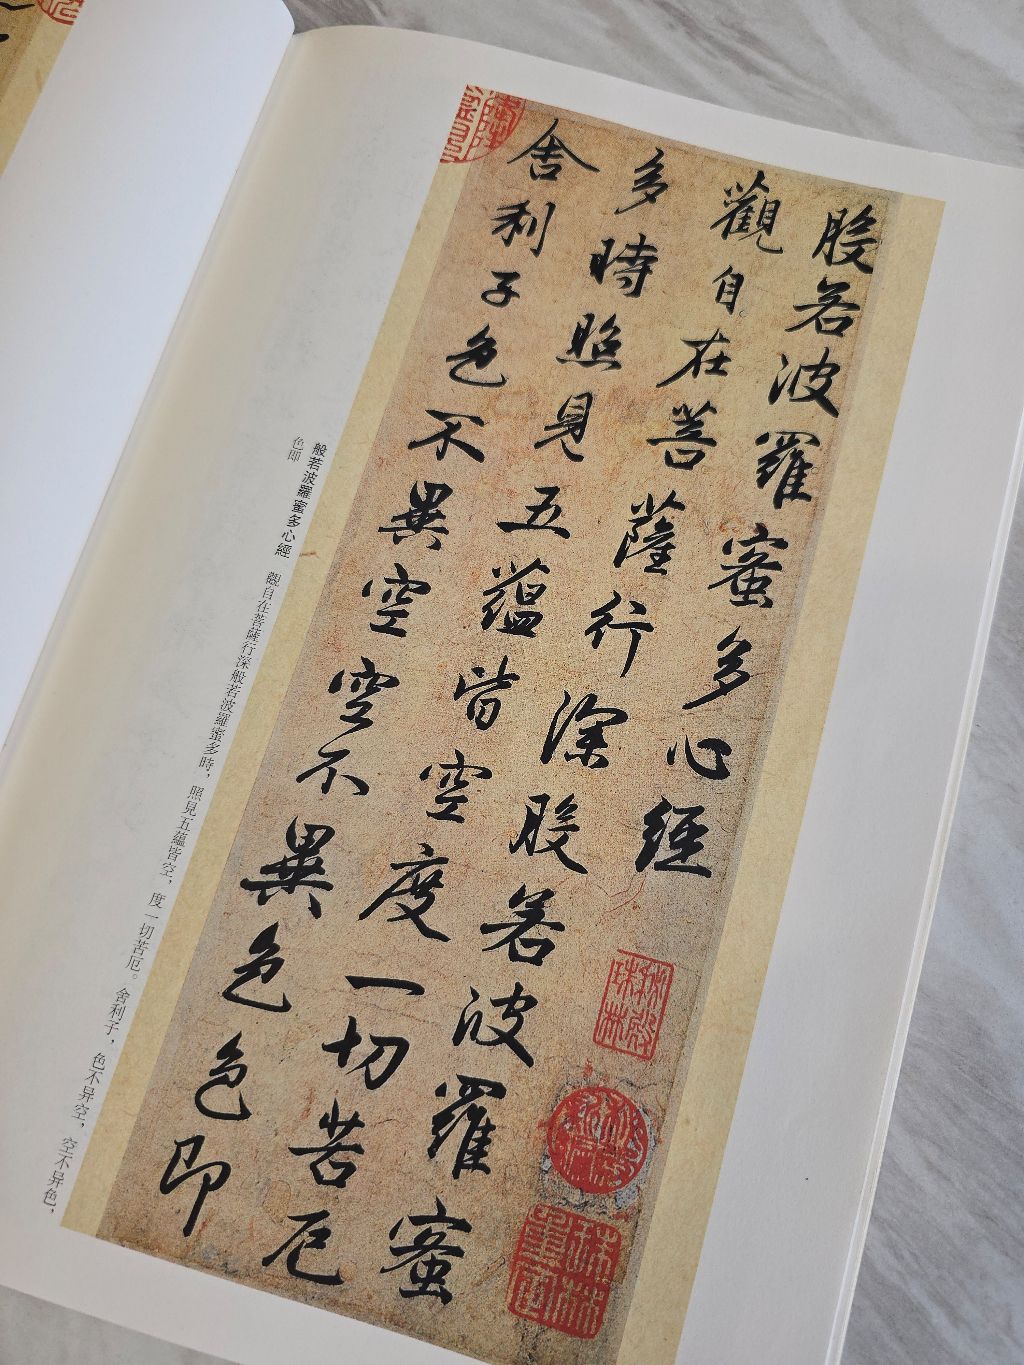 般若波羅蜜多心經
觀自在菩薩行深般若波羅蜜
多時照見五蘊皆空度一切苦厄
舍利子色不異空空不異色色即
般若波羅蜜多心經 觀自在菩薩行深般若波羅蜜多時，照見五蘊皆空，度一切苦厄。舍利子，色不异空，空不异色，
色即